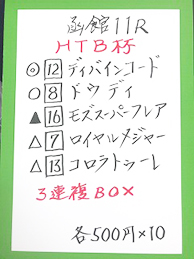 函館11R
HTB杯
◎12 ディバインコード
○8 ドウディ
▲16 モズスーパーフレア
△7 ロイヤルメジャー
△13 コロラトゥーレ
3連複BOX
各500円×10